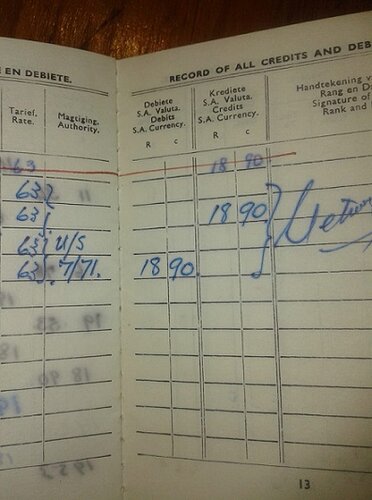 EN DEBIETE.
RECORD OF ALL CREDITS AND DEB
Tarief. Rate.
Magtiging. Authority.
Debiete
S.A. Valuta.
Debits
S.A. Currency.
R c
Krediete
S.A. Valuta.
Credits
S.A. Currency.
R c
Handtekening v
Rang en D
Signature of
Rank and
63 18 90
63
63 18 90
63 U/S
63 7/71. 18 90
13